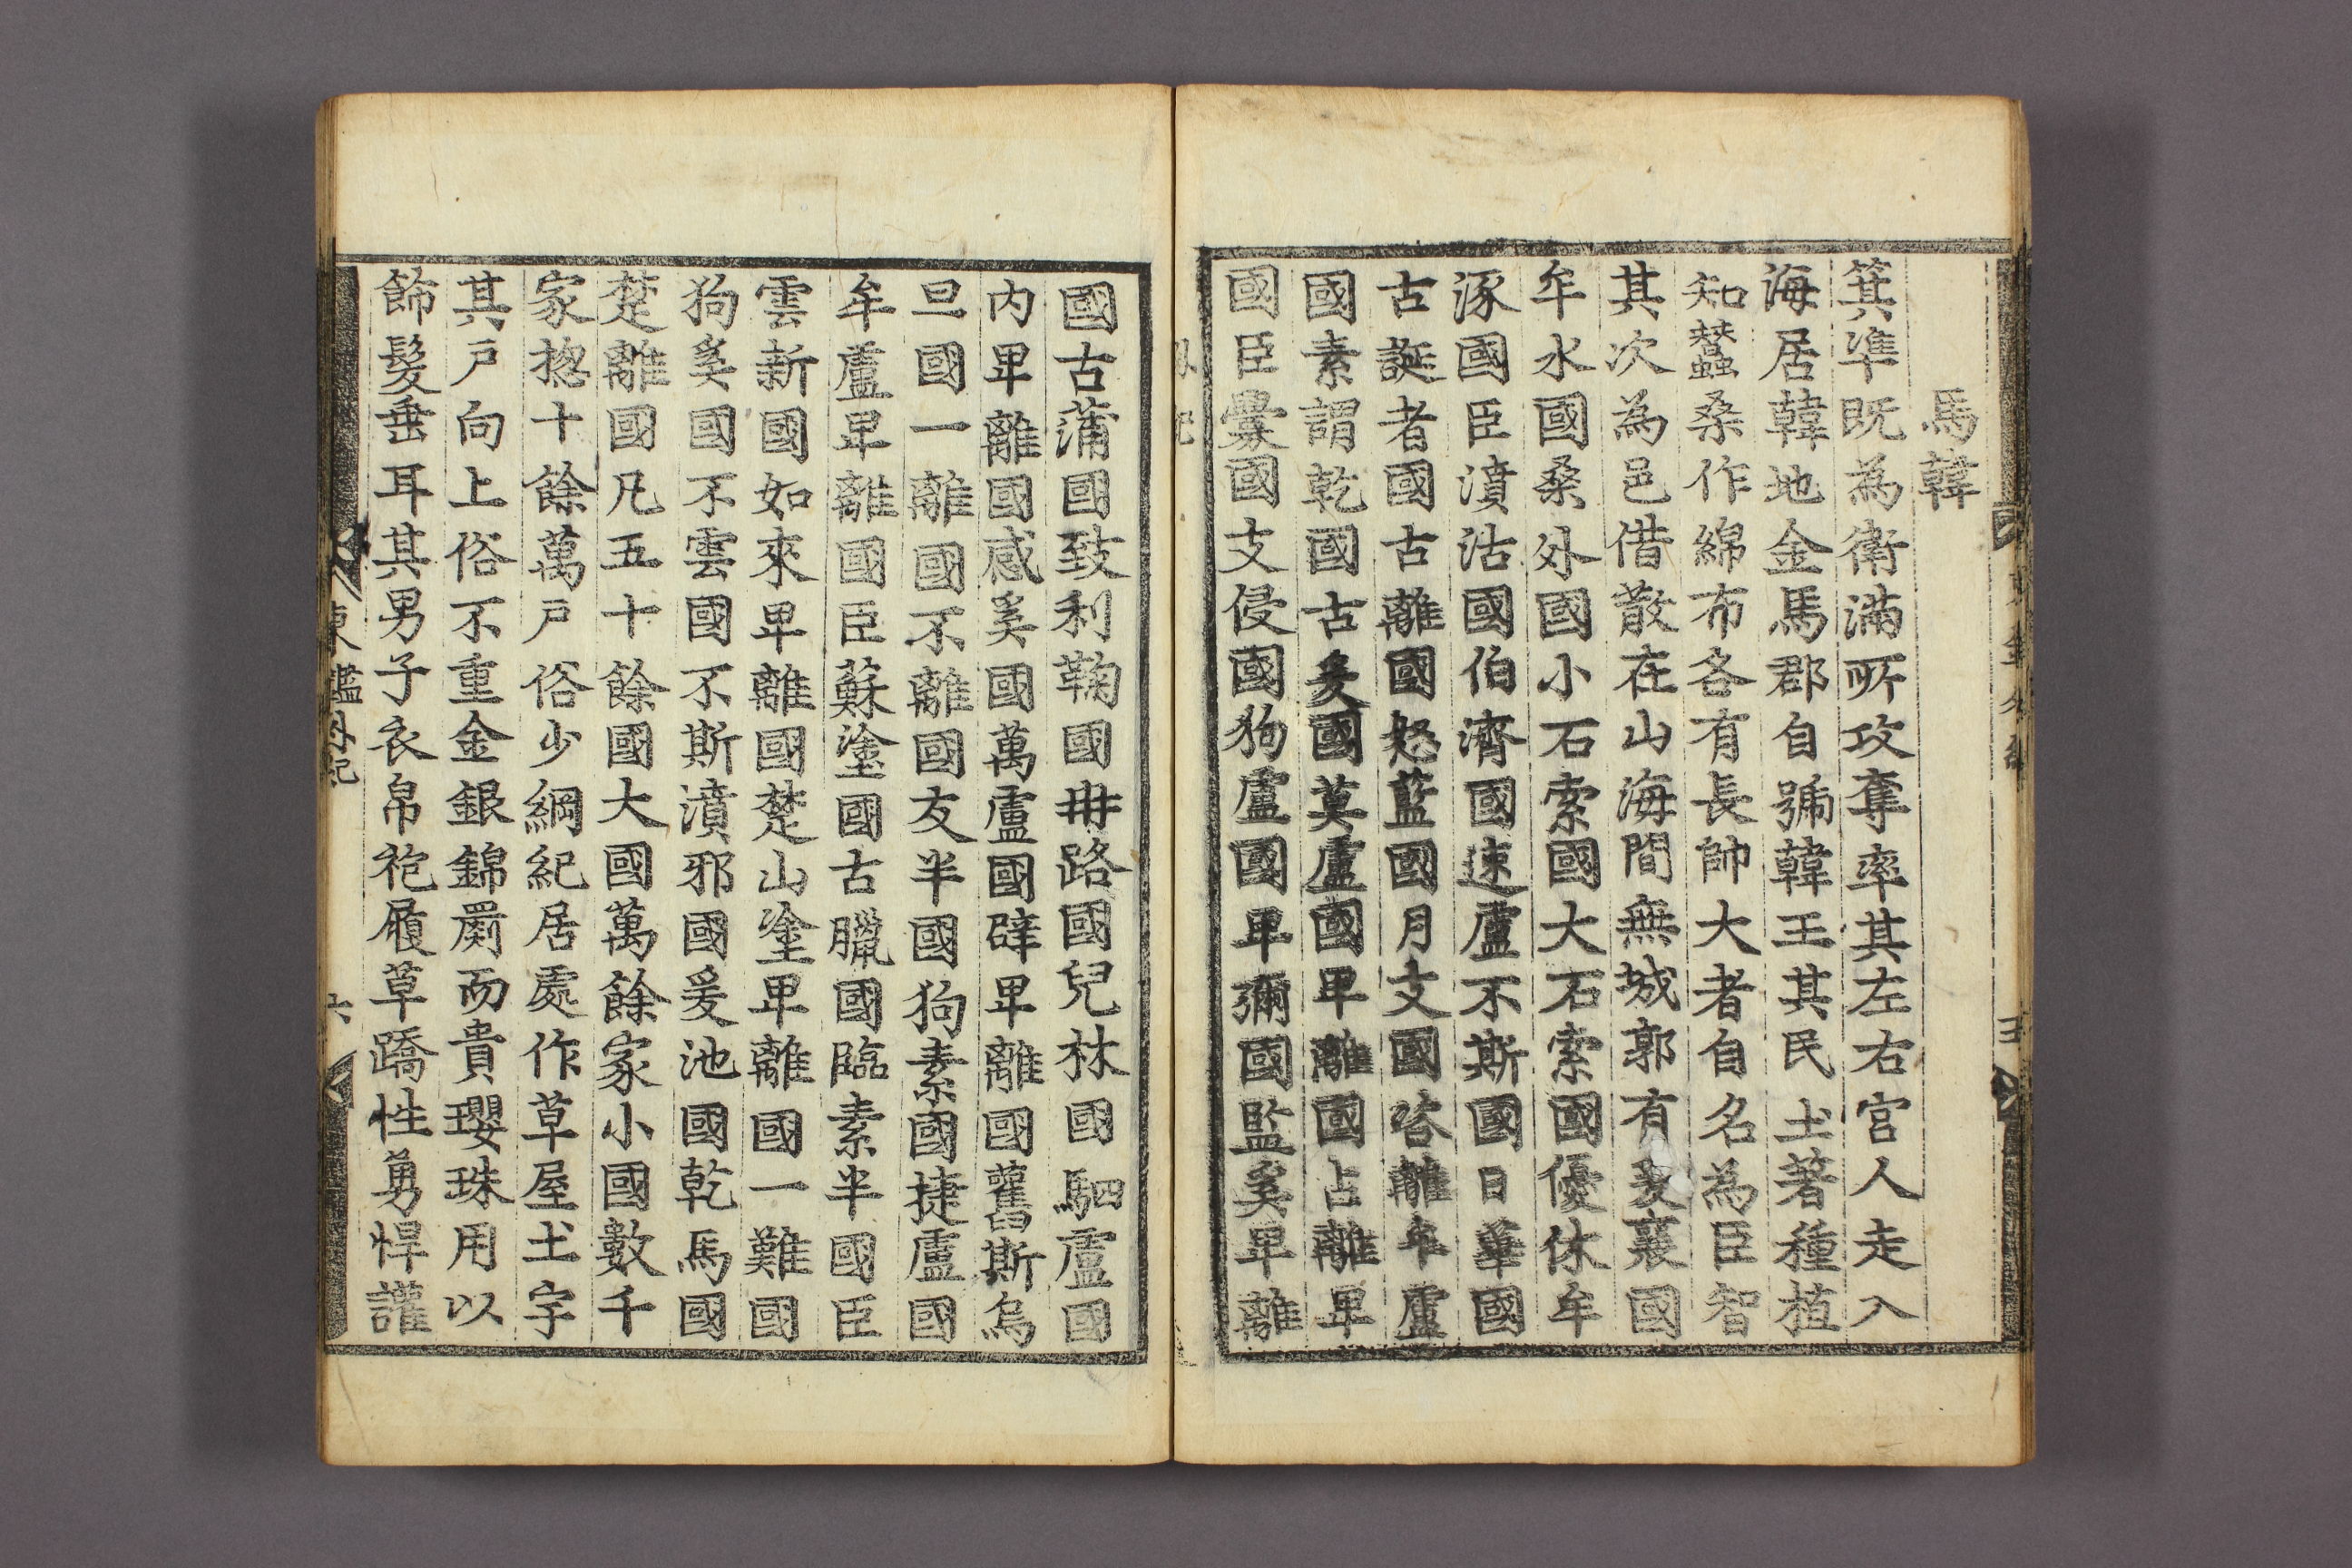 馬韓
箕準既為衛滿所攻奪率其左右宮人走入
海居韓地金馬郡自號韓王其民土著種植
知蠶桑作綿布各有長帥大者自名為臣智
其次為邑借散在山海間無城郭有爰襄國
牟水國桑外國小石索國大石索國優休牟
涿國臣濆沽國伯濟國速盧不斯國日華國
古誕者國古離國怒藍國月支國咨離牟盧
國素謂乾國古爰國莫盧國卑離國占離卑
國臣釁國支侵國狗盧國卑彌國監奚卑離
國古蒲國致利鞠國冉路國兒林國駟盧國
內卑離國感奚國萬盧國辟卑離國舊斯烏
旦國一離國不離國友半國狗素國捷盧國
牟盧卑離國臣蘇塗國古臘國臨素半國臣
雲新國如來卑離國楚山塗卑離國一難國
狗奚國不雲國不斯濆邪國爰池國乾馬國
楚離國凡五十餘國大國萬餘家小國數千
家揔十餘萬戶俗少綱紀居處作草屋土字
其戶向上俗不重金銀錦罽而貴瓔珠用以
飾髮垂耳其男子衣帛袍履草蹻性勇悍讙
東鑑外紀
六